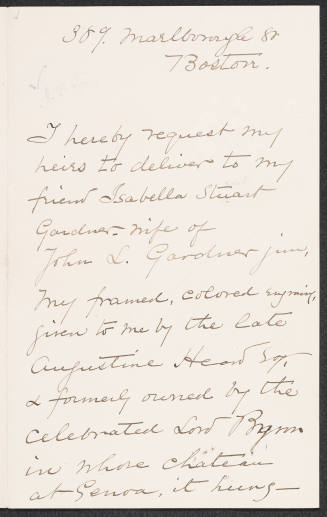 389. Marlborough St
Boston.
I hereby request my
heirs to deliver to my
friend Isabella Stuart
Gardner - wife of
John L. Gardner jun,
my framed, colored engraving,
given to me by the late
Augustine Heard Esq,
& formerly owned by the
celebrated Lord Byron
in whose château
at Genoa, it hung—